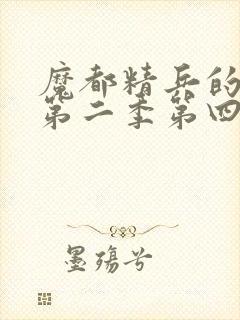 魔都精兵的
第二季第四
墨殇兮